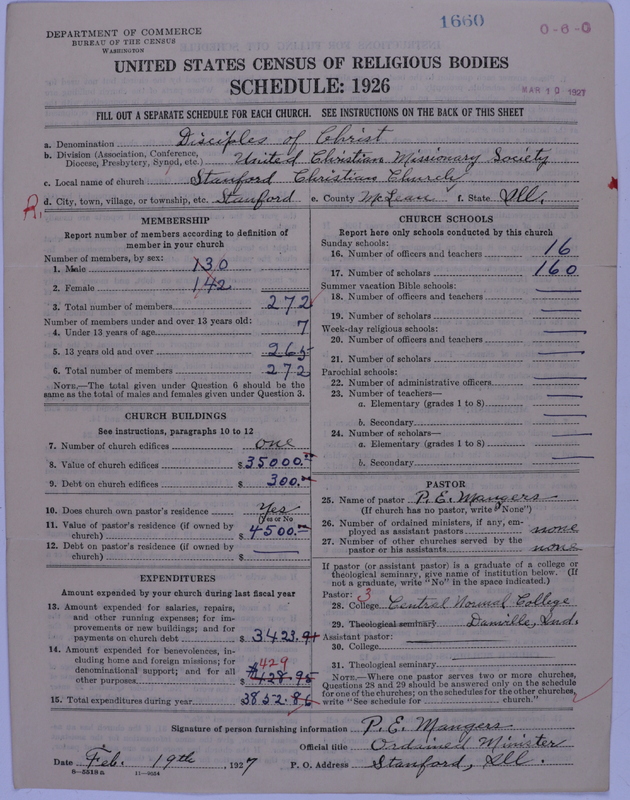 1660
0-6-0
DEPARTMENT OF COMMERCE
BUREAU OF THE CENSUS
WASHINGTON
UNITED STATES CENSUS OF RELIGIOUS BODIES
SCHEDULE: 1926
MAR 10 1927
FILL OUT A SEPARATE SCHEDULE FOR EACH CHURCH. SEE INSTRUCTIONS ON THE BACK OF THIS SHEET
a. Denomination Disciples of Christ
b. Division (Association, Conference, Diocese, Presbytery, Synod, etc.) United Christian Missionary Society
c. Local name of church Stanford Christian Church
R. d. City, town, village, or township, etc. Stanford e. County McLean f. State Ill.
MEMBERSHIP
Report number of members according to definition of
member in your church
Number of members, by sex:
1. Male 130
2. Female 142
3. Total number of members 272
Number of members under and over 13 years old:
4. Under 13 years of age 7
5. 13 years old and over 265
6. Total number of members 272
NOTE.—The total given under Question 6 should be
same as the total of males and females given under Question 3.
CHURCH BUILDINGS
See instructions, paragraphs 10 to 12
7. Number of church edifices one
8. Value of church edifices $ 35000.
9. Debt on church edifices $ 300.
10. Does church own pastor's residence Yes
(Yes or No
11. Value of pastor's residence (if owned by
church) $ 4500.
12. Debt on pastor's residence (if owned by
church) $
EXPENDITURES
Amount expended by your church during last fiscal year
13. Amount expended for salaries, repairs,
and other running expenses; for im-
provements or new buildings; and for
payments on church debt $ 3423.91
14. Amount expended for benevolences, in-
cluding home and foreign missions; for
denominational support; and for all
other purposes $ 428.95
429
15. Total expenditures during year $ 3852.86
CHURCH SCHOOLS
Report here only schools conducted by this church
Sunday schools:
16. Number of officers and teachers 16
17. Number of scholars 160
Summer vacation Bible schools:
18. Number of officers and teachers
19. Number of scholars
Week-day religious schools:
20. Number of officers and teachers
21. Number of scholars
Parochial schools:
22. Number of administrative officers
23. Number of teachers—
a. Elementary (grades 1 to 8)
b. Secondary
24. Number of scholars—
a. Elementary (grades 1 to 8)
b. Secondary
PASTOR
25. Name of pastor P. E. Mangers
(If church has no pastor, write "None")
26. Number of ordained ministers, if any, em-
ployed as assistant pastors none
27. Number of other churches served by the
pastor or his assistants none
If pastor (or assistant pastor) is a graduate of a college or
theological seminary, give name of institution below. (If
not a graduate, write "No" in the space indicated.)
Pastor: 3
28. College Central Normal College
29. Theological seminary Danville, Ind.
Assistant pastor:
30. College
31. Theological seminary
NOTE.—Where one pastor serves two or more churches,
Questions 28 and 29 should be answered only on the schedule
for one of the churches; on the schedules for the other churches,
write "See schedule for church."
Signature of person furnishing information P. E. Mangers
Official title Ordained Minister
Date Feb. 19th, 1927 P. O. Address Stanford, Ill.
8—5518a 11—9034